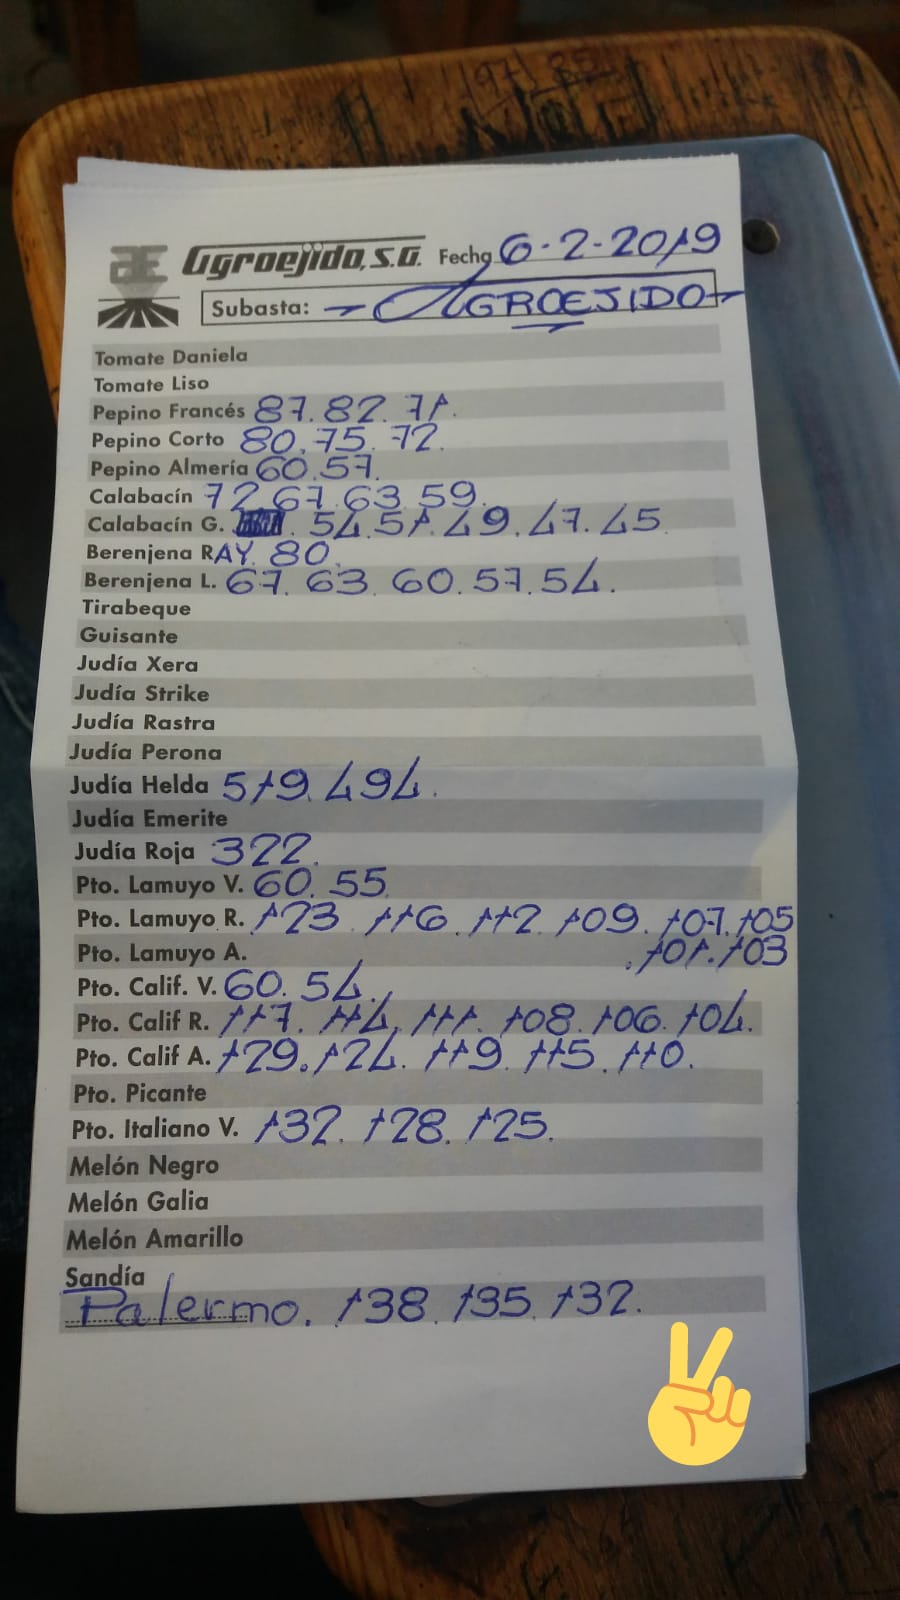 Agroejido, S.A. Fecha 6-2-2019
Subasta: - AGROEJIDO -
Tomate Daniela
Tomate Liso
Pepino Francés 87. 82. 71.
Pepino Corto 80. 75. 72.
Pepino Almería 60. 57.
Calabacín 72. 67. 63. 59.
Calabacín G. . 54. 51. 49. 47. 45
Berenjena RAY. 80.
Berenjena L. 67. 63. 60. 57. 54.
Tirabeque
Guisante
Judía Xera
Judía Strike
Judía Rastra
Judía Perona
Judía Helda 519. 494.
Judía Emerite
Judía Roja 322.
Pto. Lamuyo V. 60. 55.
Pto. Lamuyo R. 123. 116. 112. 109. 107. 105
Pto. Lamuyo A. . 101. 103
Pto. Calif. V. 60. 54.
Pto. Calif R. 117. 114. 111. 108. 106. 104.
Pto. Calif A. 129. 124. 119. 115. 110.
Pto. Picante
Pto. Italiano V. 132. 128. 125.
Melón Negro
Melón Galia
Melón Amarillo
Sandía
Palermo. 138. 135. 132.